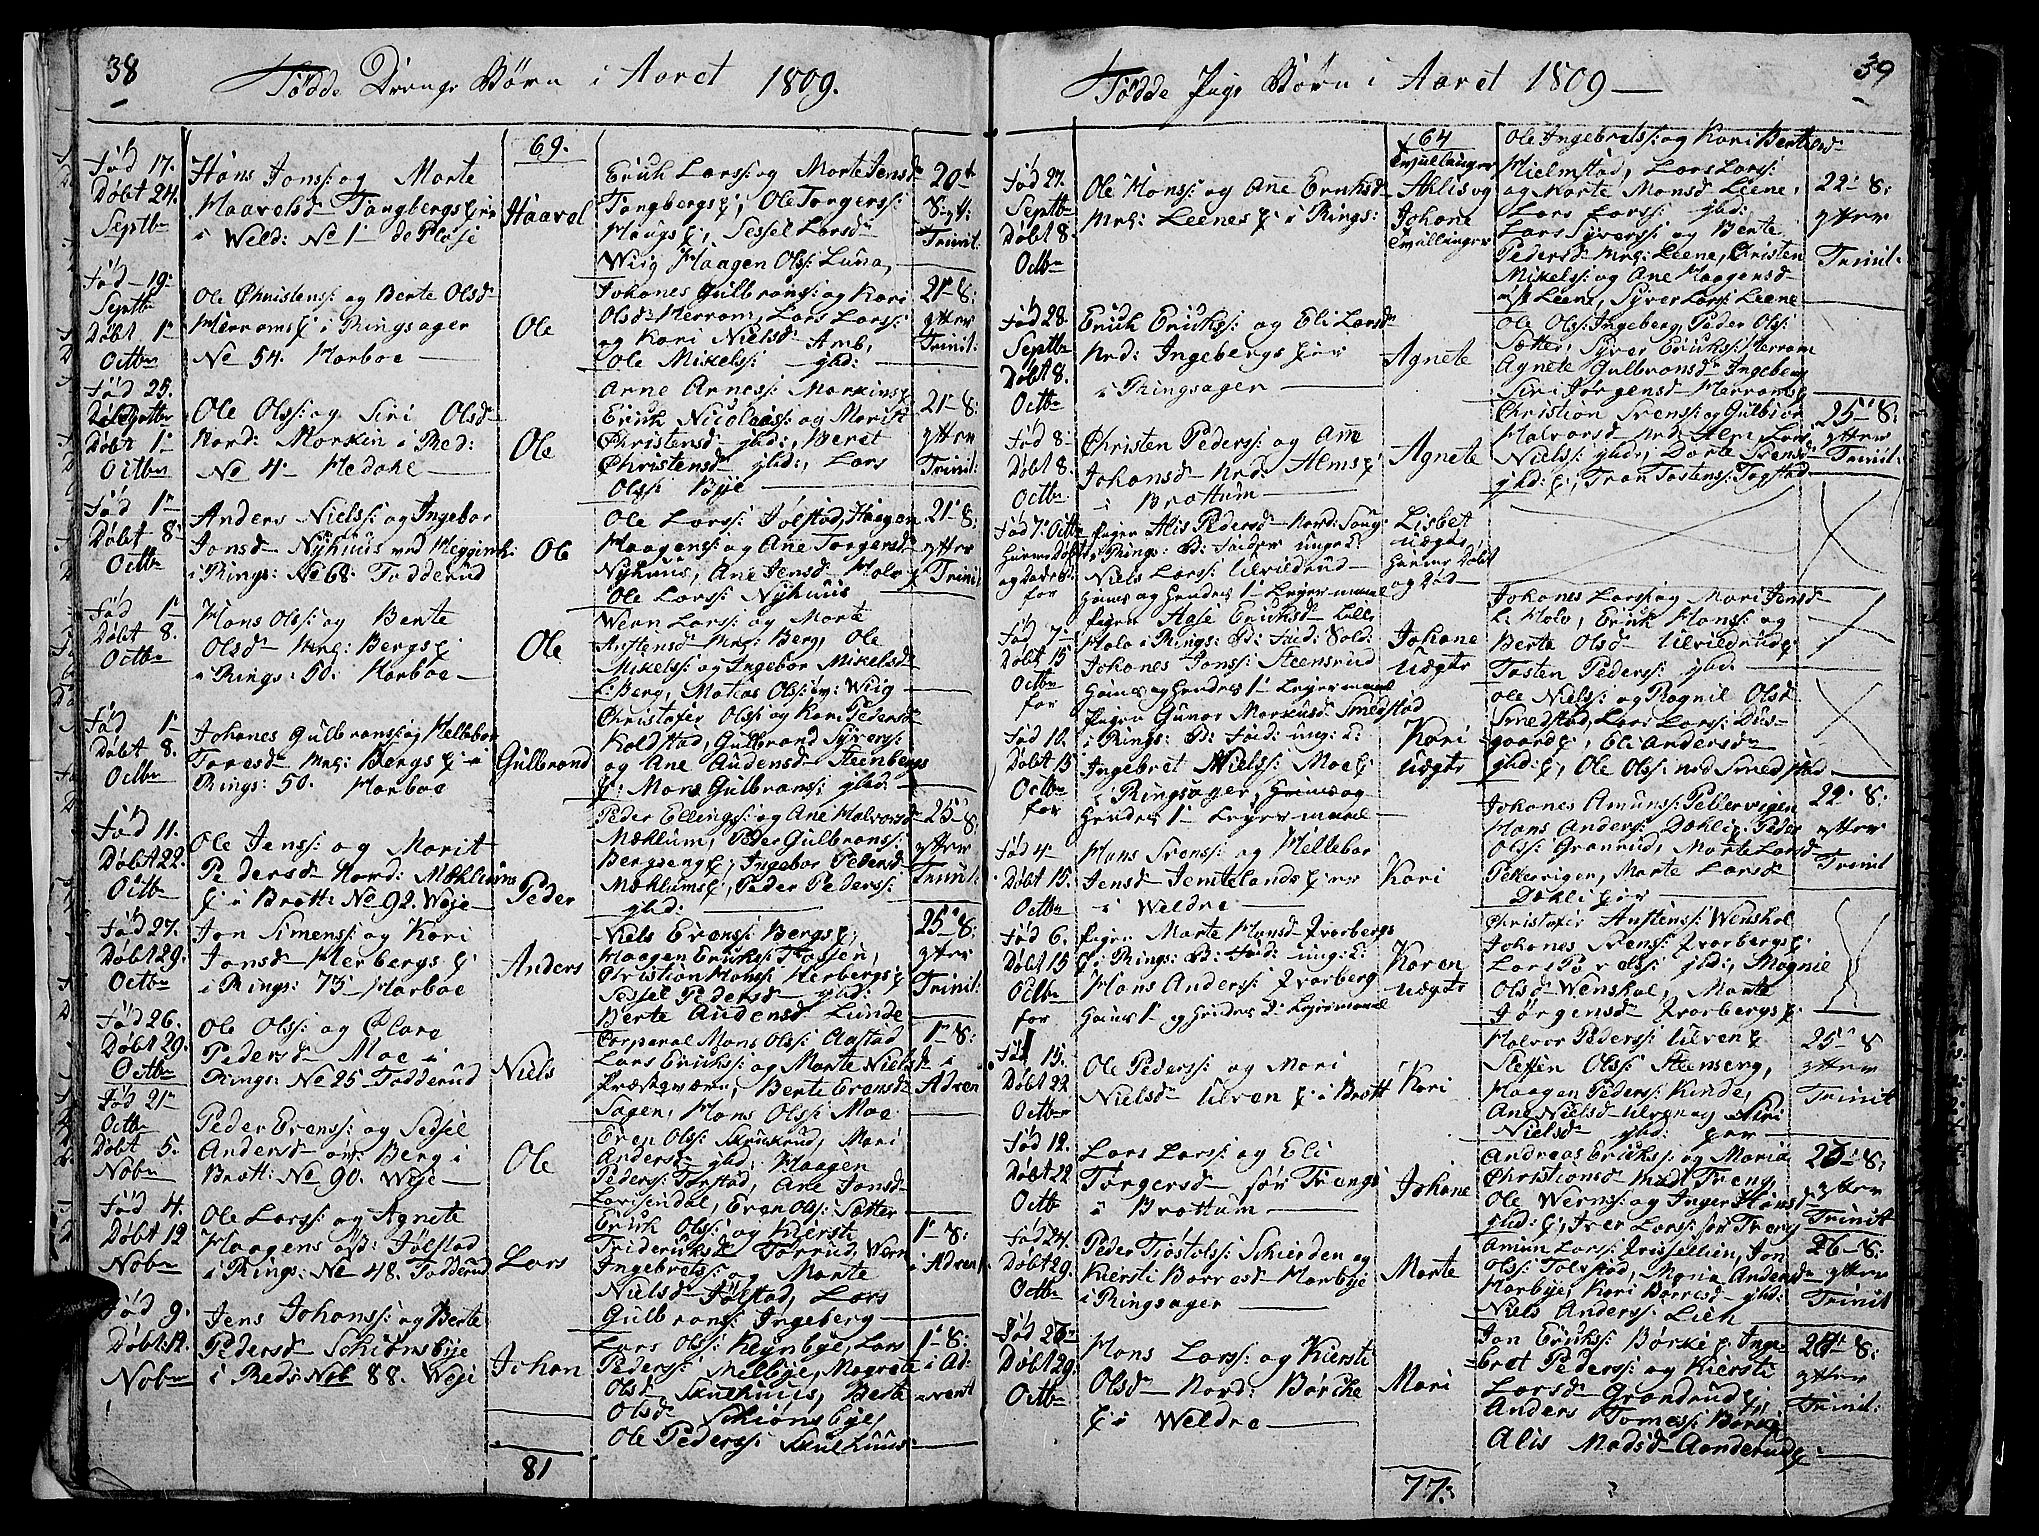 38
Fødde Drenge Børn i Aaret 1809.
69.
Fød 17.
Døbt 24.
Septbr
Hans Jonss: og Marte
Haavelsd Tangbergs
i Weld: No 1
Haavel
Erich Larss: og Marte Jensd
Tangbergs, Ole Torgerss:
Haugs, Sessel Larsd
Wiig Haagen Olss: Luna
20d
S: ytt:
Trinit:
Fød 19.
Septbr
Døbt 1
Octbr
Ole Christenss: og Berte Olsd
Herrams i Ringsager
No 54. Harboe
Ole
Johanes Gulbranss: og Kari
Olsd Herram, Lars Larss:
og Kari Nielsd Amb,
Ole Mikelss: ghd:
21 S:
ytter
Trinit:
Fød 25.
Døbt 1
Octbr
Ole Olss: og Siri Olsd
Nord: Morken i Red:
No 4 Hedahl
Ole
Arne Arness: Morkins
Erich Nicolaiss: og Marit
Christensd ghd:, Beret
Christensd ghd:, Lars
Olss: Bye
21 S:
ytter
Trinit:
Fød 1
Døbt 8
Octbr
Anders Nielss: og Ingebor
Jonsd Nÿhuus
i Rings: No 68. Todderud
Ole
Ole Larss: Jølstad, Haagen
Haagenss: og Ane Torgersd
Nÿhuus, Ane Jensd Holv
Ole Larss: Nÿhuus
21 S:
ytter
Trinit:
Fød 1
Døbt 8.
Octbr
Hans Olss: og Berte
Olsd Mrl: Bergs
i Rings: 50. Harboe
Ole
Wern Larss: og Marte
Austensd Mrl: Berg, Ole
Mikelss: og Ingebor Mikelsd
L: Berg, Matias Olss: Wiig
Fød 1
Døbt 8.
Octbr
Johanes Gulbranss: og Hellebor
Toresd Mrl: Bergs i
Rings: 50. Harboe
Gulbrand
Christofer Olss: og Kari Pedersd
Koldstad, Gulbrand Syverss:
og Ane Audensd Steenbergs
Mars Gulbranss: ghd:
Fød 11.
Døbt 22.
Octbr
Ole Jenss: og Marit
Pedersd Nord: Mæhlums
i Brott: No 92. Weje
Peder
Peder Ellingss: og Ane Halvorsd
Mæhlum, Peder Gulbranss:
Bergseng, Ingebor Pedersd
Mæhlums, Peder Pederss:
ghd:
25 S:
ytter
Trinit:
Fød 27.
Døbt 29.
Octbr
Jon Simenss: og Kari
Jonsd Herbergs
i Rings: 73 Harboe
Anders
Niels Evenss: Bergs,
Haagen Erikss: Fossen,
Christian Hanss: Herbergs
Sessel Pedersd ghd:
Berte Audensd Lunde
25 S:
ytter
Trinit:
Fød 26.
Døbt 29.
Octbr
Ole Olss: og Clare
Pedersd Moe i
Rings: No 25 Todderud
Niels
Corperal Mons Olss: Aastad
Lars Erikss: og Marte Nielsd
Præstqværn, Berte Evensd
Sagen, Hans Olss: Moe
1 S:
i
Adven
Fød 21
Octbr
Døbt 5.
Nobr
Peder Evenss: og Sedsel
Andersd Berg i
Brott: No 90. Weje
Ole
Even Olss: Skriukrud, Mari
Andersd ghd: Haagen
Pederss: Forstad, Ane Jonsd
Larisendal, Even Olss: Sætter
Fød 4.
Døbt 12
Nobr
Ole Larss: og Agnete
Haagens Jølstad
i Rings: No 48. Todderud
Lars
Erich Olss: og Kiersti
Frideriksd Torrud, Wern
Ingebretss: og Marte
Nielsd Jølstad, Lars
Gulbranss: Ingeberg
1 S:
i Adven
Fød 9.
Døbt 12.
Nobr
Jens Johanss: og Berte
Pedersd Schiønsbye
i Red: Nob 88. Weje
Johan
Lars Olss: Keynbye, Lars
Pederss: Melbye, Magrete
Olsd Skulhuus, Berte
Olsd Schiønsbye,
Ole Pederss: Skulhuus
1 S:
i Ad:
vent
81
39
Fødde Pige Børn i Aaret 1809
64
Fød 27.
Septbr
Døbt 8.
Octbr
Ole Hanss: og Ane Eriksd
Mrl: Leenes i Rings:
Tvillinger
Ahlis og
Johane
Tvillinger
Ole Ingebretss: og Kari Bertelsd
Hielmstad, Lars Larss:
og Marte Monsd Leene,
Lars Larss: ghd:
Lars Syverss: og Berte
Pedersd Mrl: Leene, Christen
Mikelss: og Ane Haagensd
Leene, Syver Larss: Leene
22 S:
ytter
Trinit:
Fød 28.
Septbr
Døbt 8.
Octbr
Erich Erichss: og Eli Larsd
Nrd: Ingebergs
i Ringsager
Agnete
Ole Olss: Ingeberg, Peder Olss:
Sætter, Syver Erikss: Herram
Agnete Gulbransd Ingeberg
Siri Jørgensd Herrams
Fød 8
Døbt 8.
Octbr
Christen Pederss: og Ane
Johansd Nrd: Alms
i Brottum
Agnete
Christian Svenss: og Gulbior
Halvorsd Nrd Alm, Lars
Nielss: ghd:, Dorte Svensd
ghd:, Iran Tostenss: Fogstad
25 S:
ytter
Trinit:
Fød 7 Octbr
Hiemedøbt
og Død
for
Pigen Alis Pedersd Nord: Saug
i Rings: B: Faider unge K:
Niels Larss: Ulvildrud
Hans og Hendes 1 Leyermaal
Lisbet
Uægte
Hieme Døbt
og Død
Fød 7
Døbt 15
Octbr
for
Pigen Aase Eriksd Lille
Holv i Rings: B: Faid: Sold:
Johanes Jonss: Steensrud
Hans og Hendes 1 Leyermaal
Johane
Uægte
Johanes Larss: og Mari Jensd
L: Holv, Erich Hanss: og
Berte Olsd Ulvildrud
Tosten Pederss: ghd:
Fød 10.
Døbt 15
Octbr
for
Pigen Gunor Markusd Smedstad
i Rings: B: Faid: ung: K:
Ingebret Nielss: Moe
i Ringsager, Hans og
Hendes 1 Leyermaal
Kari
Uægte
Ole Nielss: og Ragnil Olsd
Smedstad, Lars Larss: Diis-
gaard, Eli Andersd
ghd:, Ole Olss: ned Smedstad
Fød 4
Døbt 15.
Octbr
Hans Svenss: og Hellebor
Jensd Jemtelands
i Weldre
Kari
Johanes Amunss: Pellervigen
Hans Anderss: Dahli, Peder
Olss: Granrud, Marte Larsd
Pellervigen, Marte Larsd
Dahli
22 S:
ytter
Trinit
Fød 6.
Døbt 15
Octbr
for
Pigen Marte Hansd Hvarbergs
i Rings: B: Faid: ung: K:
Hans Anderss: Hvarberg
Hans 1 og Hendes 2: Leyermaal
Karen
Uægte
Christofer Austenss: Wenskal
Johanes Svenss: Hvarbergs
Lars Torelss: ghd:, Magnil
Olsd Wenskal, Marte
Jørgensd Hvarbergs
Fød 15.
Døbt 22
Octbr
Ole Pederss: og Mari
Nielsd Ulven i Brott
Kari
Halvor Pederss: Ulven
Steffen Olss: Steenseng,
Haagen Pederss: Kinde,
Ane Nielsd Ulven og Siri
Nielsd ghd:
25 S
ytter
Trinit
Fød 12.
Døbt 22
Octb
Lars Larss: og Eli
Torgersd sør Treng
i Brottum
Johane
Andreas Erikss: og Maria
Christiansd Treng
Ole Wernss: og Inger Hansd
ghd:, Iver Larss: sør Treng
23 S:
ytter
Trinit
Fød 24.
Døbt 29.
Octbr
Peder Tiøstolss: Schierden og
Kiersti Borresd Harbye
i Ringsager
Marte
Amun Larss: Frisellien, Jon
Olss: Tolvstad, Maria Andersd
Harbye, Kari Borresd ghd:
Niels Anderss: Lieh
26 S:
ytter
Trinit
Døbt 29.
Octbr
Hans Larss: og Kiersti
Olsd Nord: Børche
i Weldre
Mari
Jon Erikss: Børke, Inge-
bret Pederss: og Kiersti
Larsd Grandrud
Anders Tomess: Børke
Alis Madsd Aanderud
ytter
Trinit:
77.